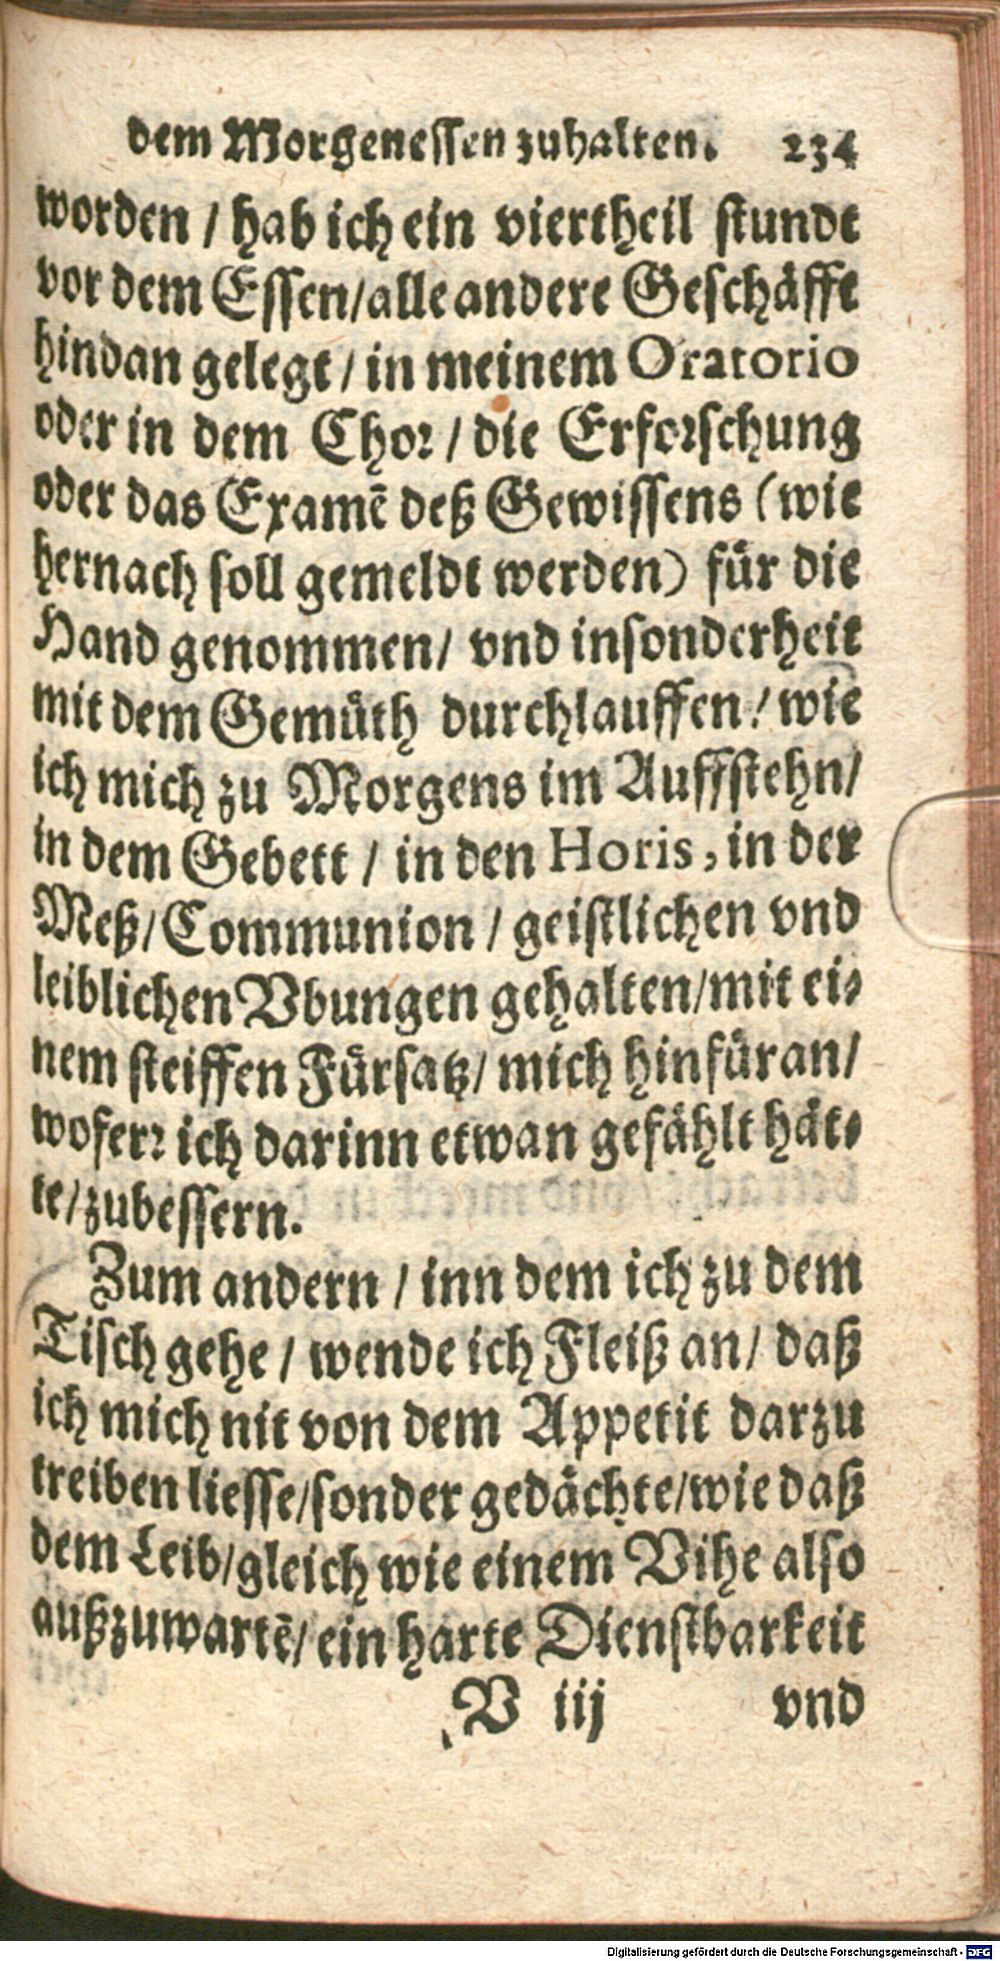 dem Morgenessen zuhalten. 234
worden / hab ich ein viertheil stundt
vor dem Essen/alle andere Geschäfft
hindan gelegt / in meinem Oratorio
oder in dem Chor / die Erforschung
oder das Examē deß Gewissens (wie
hernach soll gemeldt werden) für die
Hand genommen/ vnd insonderheit
mit dem Gemüth durchlauffen / wie
ich mich zu Morgens im Auffstehn/
in dem Gebett / in den Horis, in der
Meß/Communion / geistlichen vnd
leiblichen Vbungen gehalten/mit ei-
nem steiffen Fürsatz/ mich hinfüran/
woferr ich darinn etwan gefählt hät-
te/zubessern.
Zum andern / inn dem ich zu dem
Tisch gehe / wende ich Fleiß an/ daß
ich mich nit von dem Appetit darzu
treiben liesse/sonder gedächte/wie daß
dem Leib/gleich wie einem Vihe also
außzuwartē/ ein harte Dienstbarkeit
V iij vnd
Digitalisierung gefördert durch die Deutsche Forschungsgemeinschaft - DFG